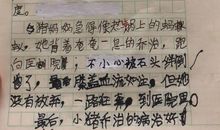 度。
白狗妈妈急得像热锅上的蚂蚁
蚁,她背着爸爸一起的乔治,跑
向医院,不小心被石头绊倒
了,膝盖血流如注,但她
没有放弃,一路狂奔,到医院里
最后,小猪乔治的病治好